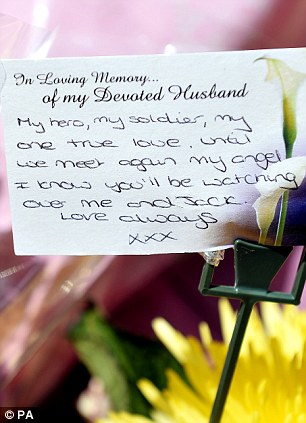 In Loving Memory...
of my Devoted Husband
My hero, my soldier, my
one true love. Until
we meet again my angel
I know you'll be watching
over me and Jack.
Love always
xxx
© PA